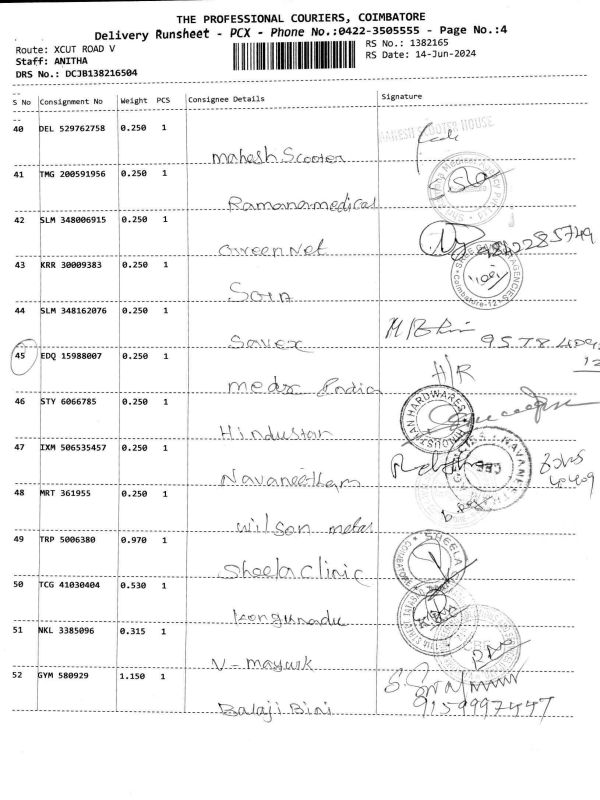 THE PROFESSIONAL COURIERS, COIMBATORE
Delivery Runsheet - PCX - Phone No.:0422-3505555 - Page No.:4
Route: XCUT ROAD V
RS No.: 1382165
Staff: ANITHA
RS Date: 14-Jun-2024
DRS No.: DCJB138216504
S No Consignment No Weight PCS Consignee Details Signature
40 DEL 529762758 0.250 1
MAHESH SCOOTER HOUSE
Mahesh Scooter
41 TMG 200591956 0.250 1
Ramanamedical
42 SLM 348006915 0.250 1
Green Net 9842285749
43 KRR 30009383 0.250 1
44 SLM 348162076 0.250 1
Savex
45 EDQ 15988007 0.250 1
H/R
medx India
46 STY 6066785 0.250 1
HINDUSTHAN HARDWARES
Hindustan
47 IXM 506535457 0.250 1
Navaneetham
48 MRT 361955 0.250 1
Wilson metal
49 TRP 5006380 0.970 1
SHEELA
Sheela Clinic
50 TCG 41030404 0.530 1
Kongunadu
51 NKL 3385096 0.315 1
V-mayurk
52 GYM 580929 1.150 1
Balaji Bini 9159997447